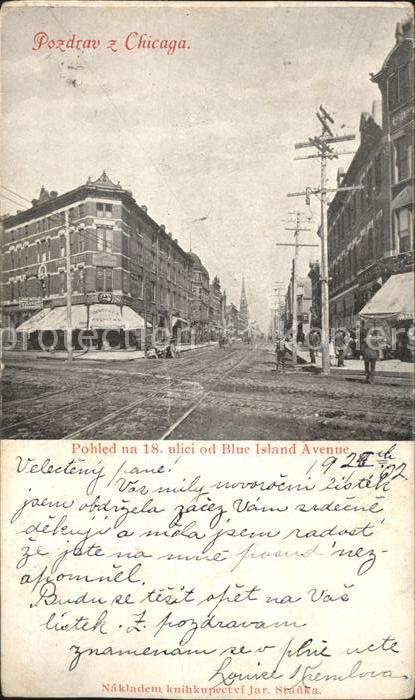 Pozdrav z Chicaga.
Pohled na 18. ulici od Blue Island Avenue
Velectěný pane!
Váš milý novoroční lístek
jsem obdržela začez Vám srdečně
děkuji a měla jsem radost
že jste na mně posud nez-
apomněl.
Budu se těšit opět na Váš
lístek. Z pozdravam
znamenám se v plné ucte
Louise
Nákladem knihkupectví Jar. Staňka.